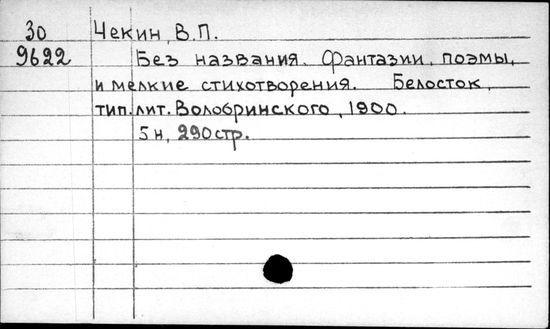 30 Чекин, В.П.
9622 Без названия. Фантазии, поэмы,
и мелкие стихотворения. Белосток,
тип. лит. Волобринского, 1900.
5 н, 290 стр.